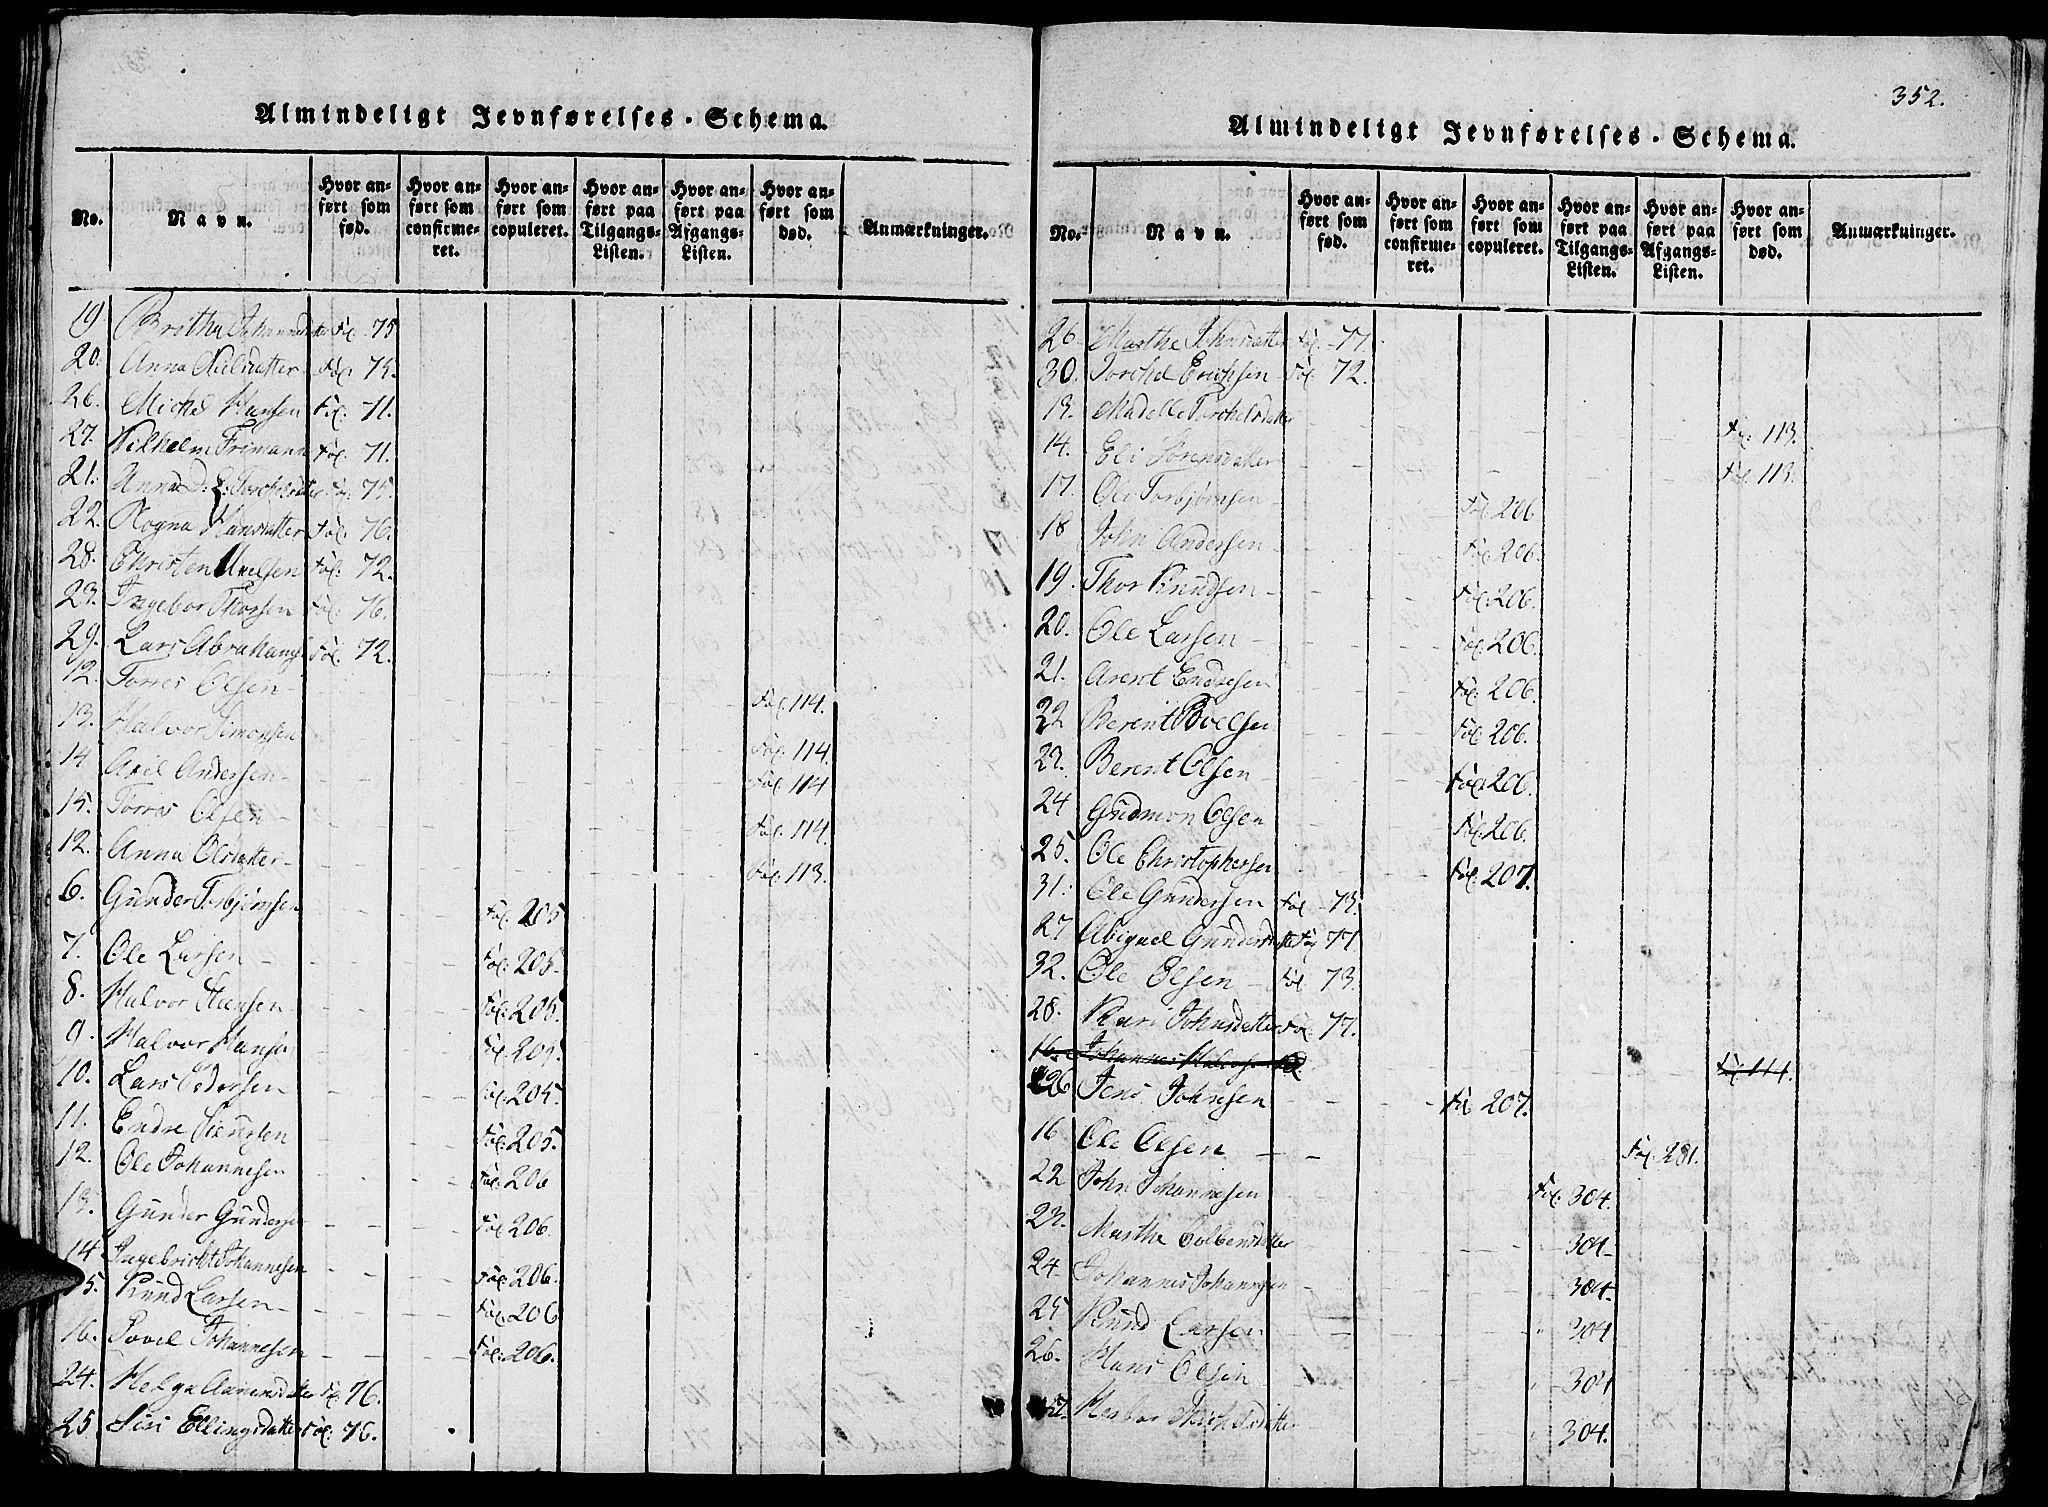 Almindeligt Jevnførelses-Schema.
No. Navn. Hvor anført som fød. Hvor anført som confirmeret. Hvor anført som copuleret. Hvor anført paa Tilgangs-Listen. Hvor anført paa Afgangs-Listen. Hvor anført som død. Anmærkninger.
19 Johannesdatter Fol. 75
20. Anna Nielsdatter Fol. 75.
26. Michel Hansen Fol. 71.
27. Vilhelm Frimann Fol. 71.
21. Anna D. L. Torchelsdatter Fol. 75.
22. Rogna Hansdatter Fol. 76.
28. Christen Fol. 72.
23. Ingebor Thorsen Fol. 76.
29. Lars Abrahams Fol. 72.
12. Torres Olsen Fol. 114.
13. Halvor Simonsen Fol. 114.
14 Axel Andersen Fol. 114
15. Torres Olsen Fol. 114.
12. Anna Olsdatter Fol. 113.
6. Gunder Torbjørnsen Fol. 205
7. Ole Larsen Fol. 205.
8. Halvor Steensen Fol. 205.
9. Halvor Hansen Fol. 205.
10. Lars Pedersen Fol. 205.
11. Endre Fol. 205.
12. Ole Johannesen Fol. 206
13. Gunder Gundersen Fol. 206.
14 Ingebricht Johannesen Fol. 206.
15. Knud Larsen Fol. 206
16. Povel Johannesen Fol. 206.
24. Helga Aanensdatter Fol. 76.
25. Siri Ellingsdatter Fol. 76.
352.
Almindeligt Jevnførelses-Schema.
No. Navn. Hvor anført som fød. Hvor anført som confirmeret. Hvor anført som copuleret. Hvor anført paa Tilgangs-Listen. Hvor anført paa Afgangs-Listen. Hvor anført som død. Anmærkninger.
26 Marthe Johnsdatter Fol. 77.
30. Torchel Erichsen Fol. 72.
13. Torchelsdatter Fol. 113.
14. Eli Sørensdatter Fol. 113.
17. Ole Torbjørnsen Fol. 206
18 John Andersen Fol. 206.
19. Thor Knudsen Fol. 206.
20. Ole Larsen Fol. 206.
21. Arent Endresen Fol. 206.
22 Berent Fol. 206.
23. Berent Olsen Fol. 206.
24 Gudmon Olsen Fol. 206.
25. Ole Christophersen Fol. 207.
31. Ole Gundersen Fol. 73.
27 Abigael Gundersdatter Fol. 77
32. Ole Olsen Fol. 73.
28. Kari Johnsdatter Fol. 77.
16. Johannes Halvorsen Fol. 114.
26 Jens Johnsen Fol. 207.
16 Ole Olsen Fol. 281.
22 John Johannesen Fol. 304.
23. Marthe Colbensdatter 304
24 Johannes Johannesen " 304.
25 Knud Larsen " 304
26. Hans Olsen " 304
27. " 304.